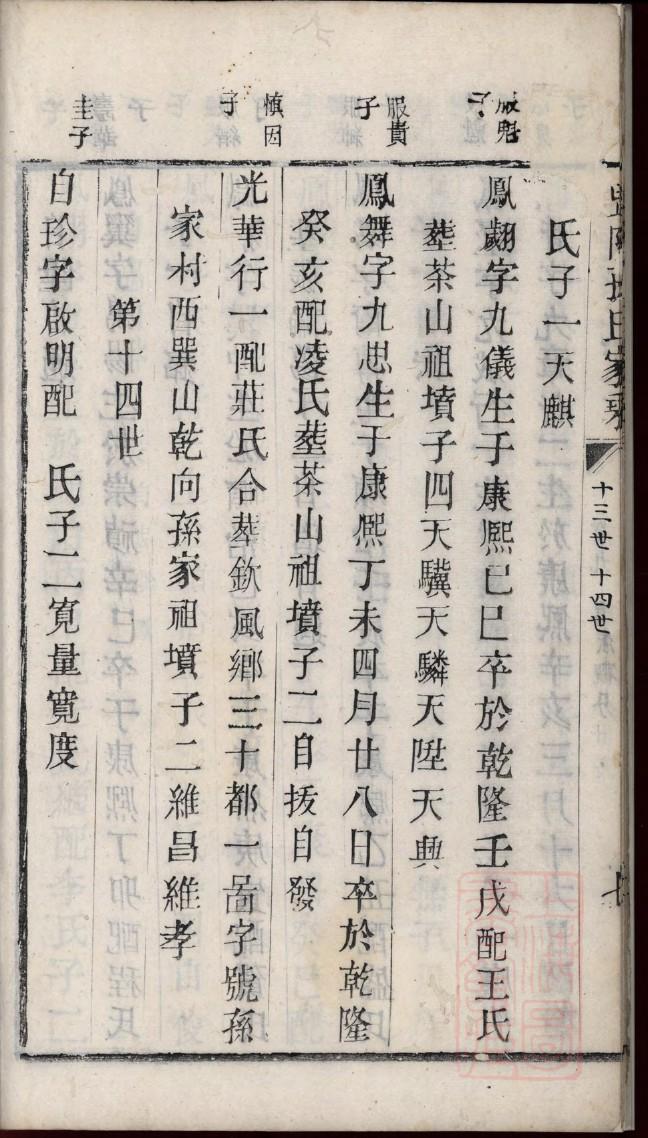 氏家乘
十三世十四世
氏子一天麒
服魁子
鳳翽字九儀生于康熙己巳卒於乾隆壬戌配王氏
塟茶山祖墳子四天驥天驎天陞天興
服貴子
鳳舞字九思生于康熙丁未四月廿八日卒於乾隆
癸亥配凌氏塟茶山祖墳子二自拔自發
慎因子
光華行一配莊氏合塟欽風鄉三十都一啚字號孫
家村西巽山乾向孫家祖墳子二維昌維孝
第十四世
圭子
自珍字啟明配 氏子二寬量寬度